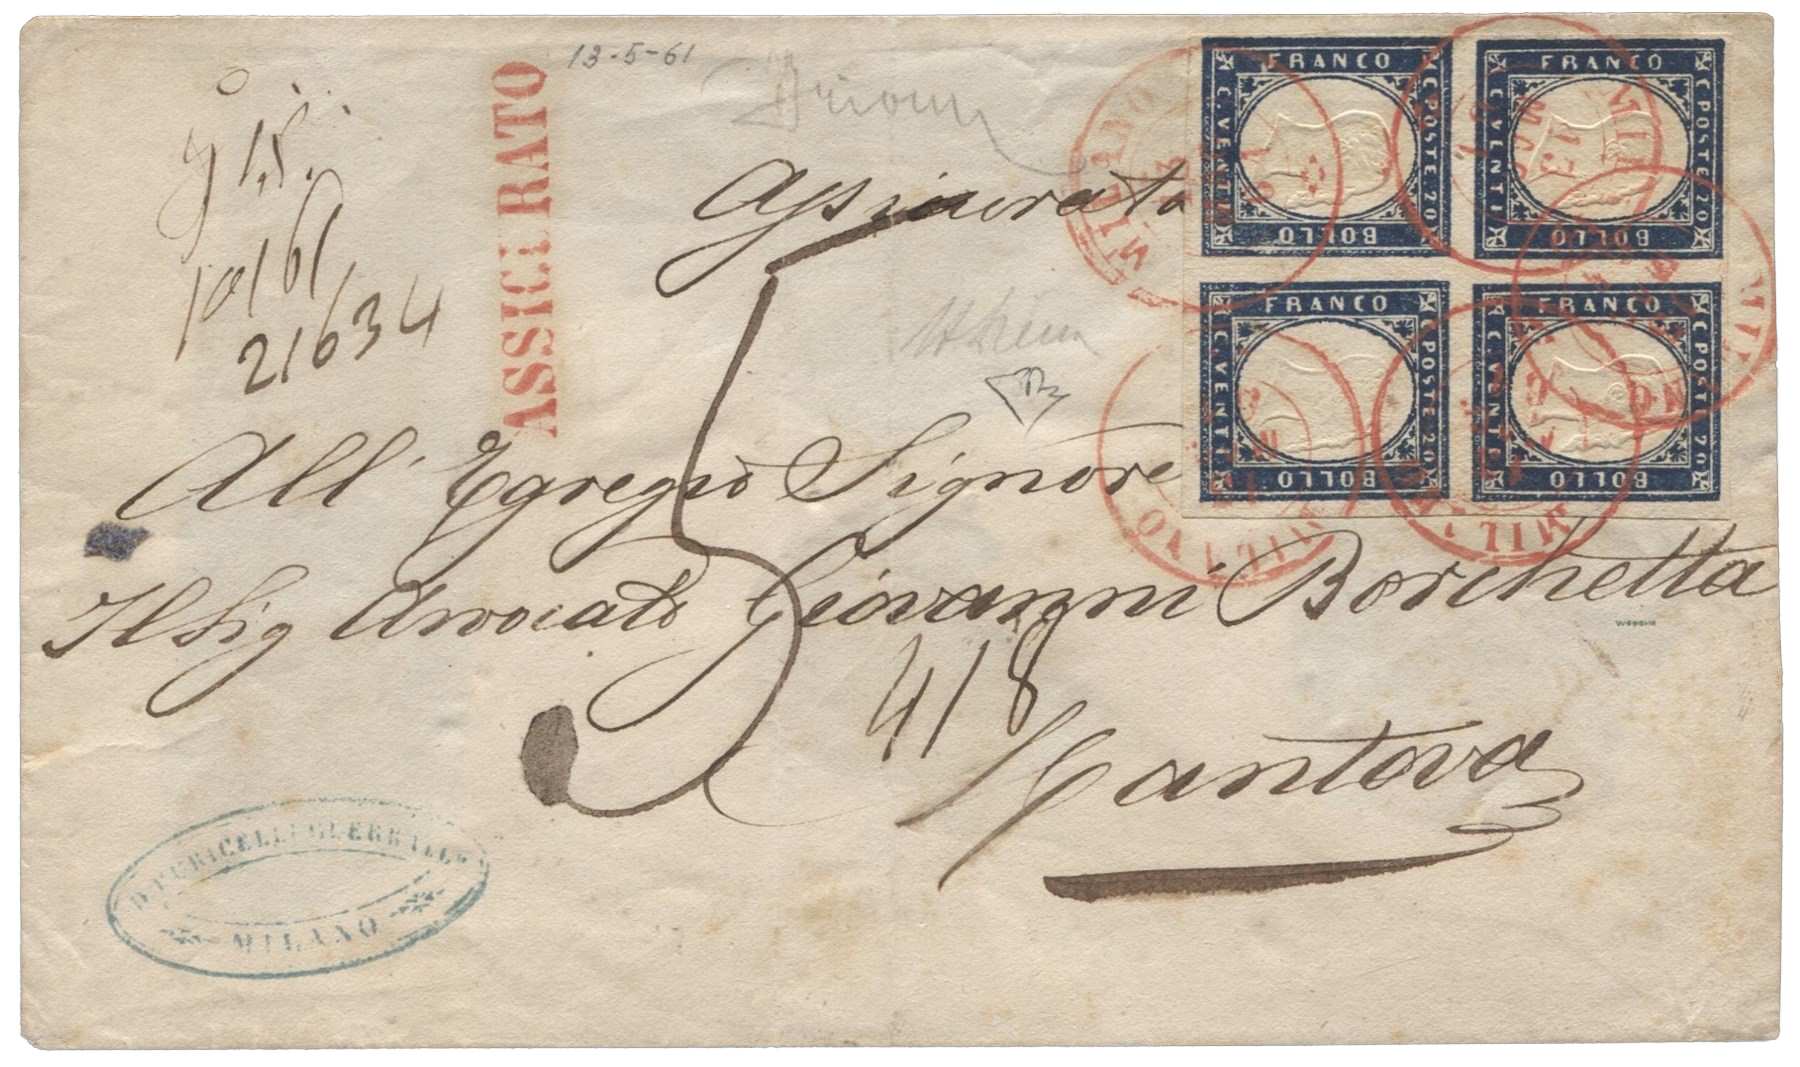 13-5-61
ASSICURATO
g 15.
10/61
21634
Assicurata
5
All' Egregio Signore
Il Sig Avvocato Giovanni Borchetta
418
Mantova
MILANO
FRANCO
C. POSTE 20
BOLLO
C. VENTI
FRANCO
C. POSTE 20
BOLLO
C. VENTI
FRANCO
C. POSTE 20
BOLLO
C. VENTI
FRANCO
C. POSTE 20
BOLLO
C. VENTI
MILANO
13
MILANO
MILANO
MILANO
MILANO